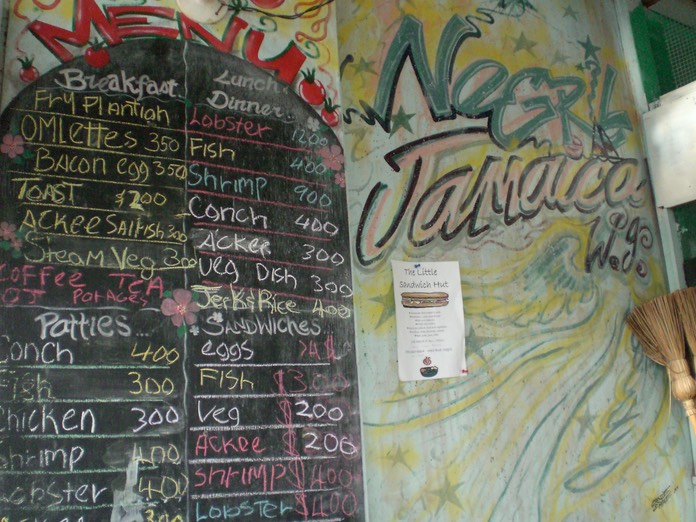 MENU
Breakfast
Fry Plantian
OMLettes 350
Bacon egg 350
TOAST $200
Ackee Saltfish 300
Steam Veg 300
COFFEE TEA
OJ PORAGES
Patties...
Conch 400
Fish 300
Chicken 300
Shrimp 400
Lobster 400
300
Lunch
Dinner..
Lobster 1200
Fish 400
Shrimp 900
Conch 400
Ackee 300
Veg Dish 300
Jerk Rice 400
SANDWICHES
eggs
Fish $300
Veg $200
Ackee $200
Shrimp $400
Lobster $400
NEGRIL
Jamaica
W.I.
The Little
Sandwich Hut